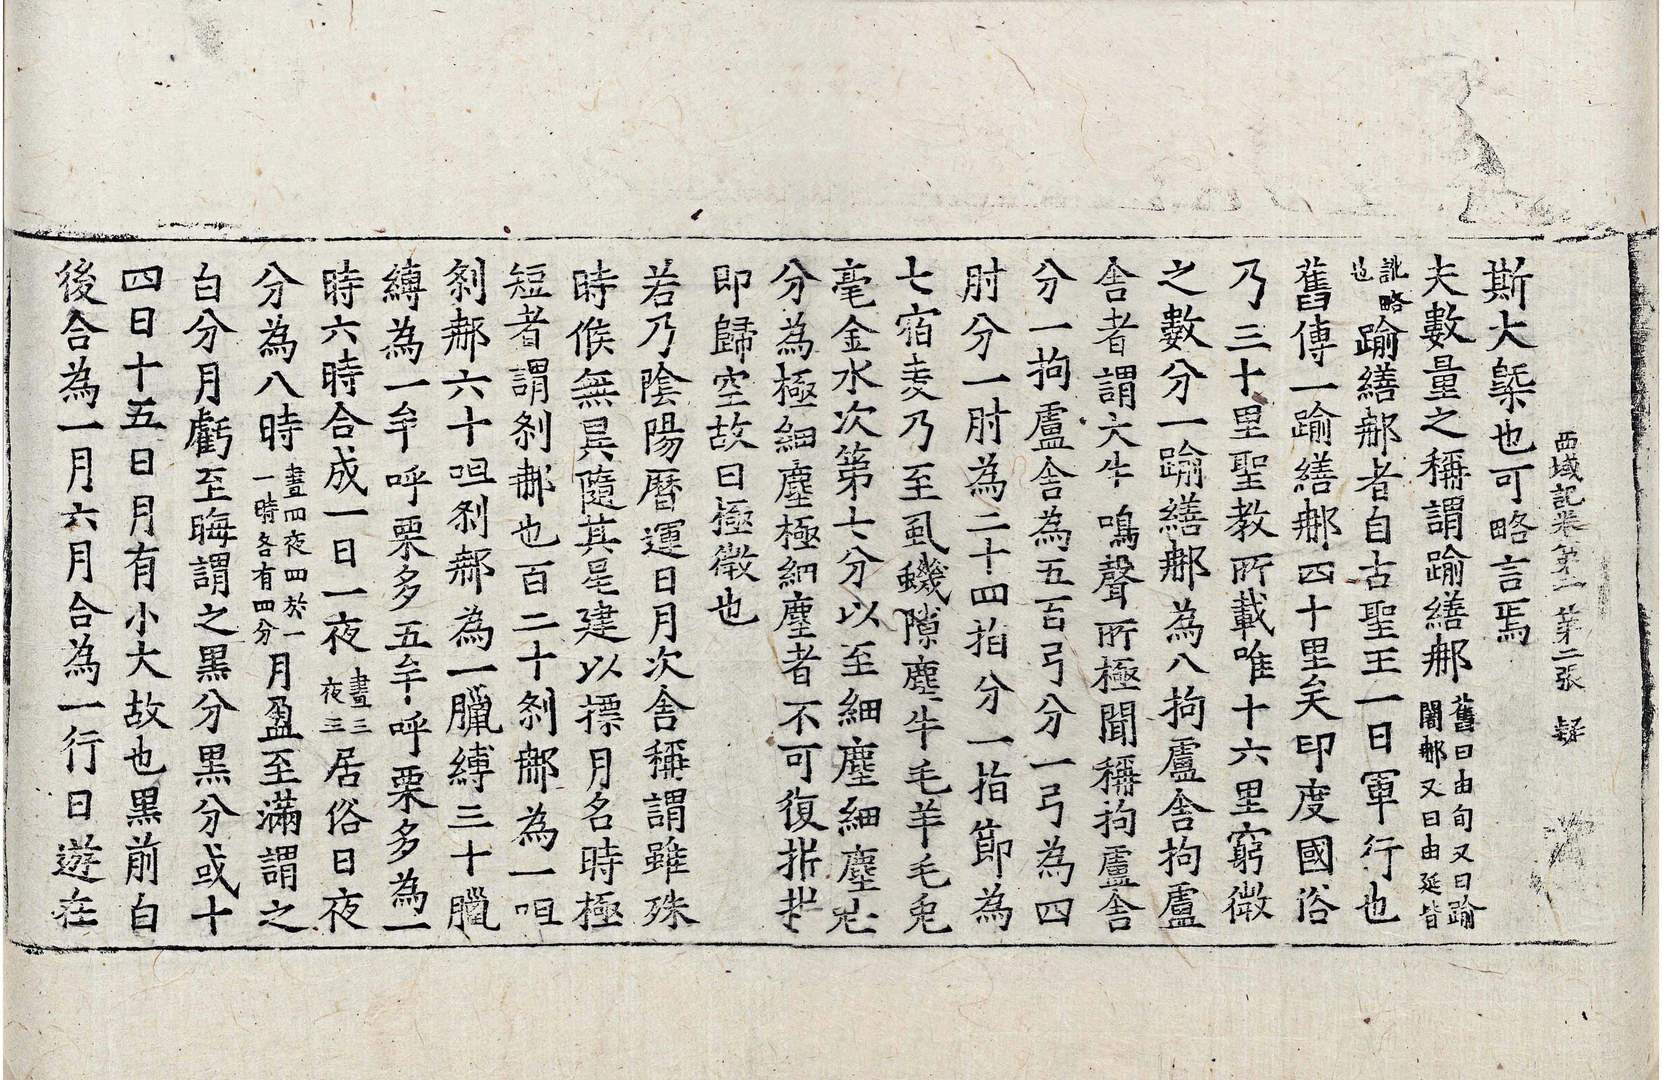 西域記卷第二 第二張 疑
斯大槩也可略言焉
夫數量之稱謂踰繕那舊曰由旬又曰踰闍那又曰由延皆
訛略也踰繕那者自古聖王一日軍行也
舊傳一踰繕那四十里矣印度國俗
乃三十里聖教所載唯十六里窮微
之數分一踰繕那為八拘盧舍拘盧
舍者謂大牛鳴聲所極聞稱拘盧舍
分一拘盧舍為五百弓分一弓為四
肘分一肘為二十四指分一指節為
七宿麦乃至虱蟣隙塵牛毛羊毛兎
毫金水次第七分以至細塵細塵七
分為極細塵極細塵者不可復析析
即歸空故曰極微也
若乃陰陽曆運日月次舍稱謂雖殊
時候無異隨其星建以摽月名時極
短者謂刹那也百二十刹那為一呾
刹那六十呾刹那為一臘縛三十臘
縛為一牟呼栗多五牟呼栗多為一
時六時合成一日一夜晝三夜三居俗日夜
分為八時晝四夜四於一一時各有四分月盈至滿謂之
白分月虧至晦謂之黑分黑分或十
四日十五日月有小大故也黑前白
後合為一月六月合為一行日遊在